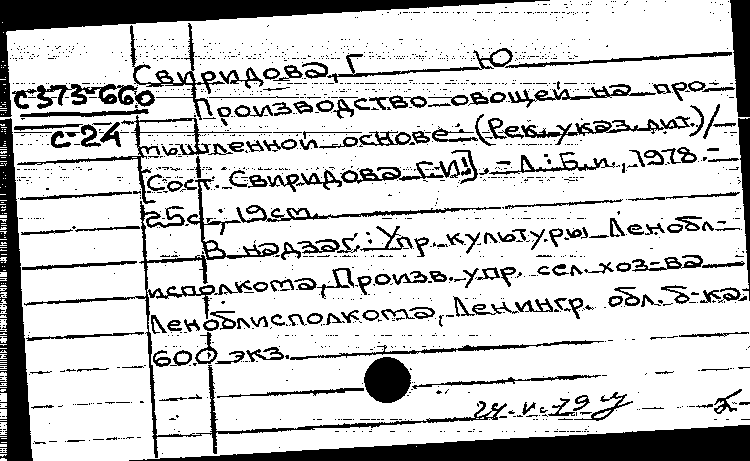 Свиридова, Г Ю
с-373-660
с-24
Производство овощей на про-
мышленной основе: (Рек. указ. лит.)/
[Сост. Свиридова Г.И]. - Л.: Б. и., 1978. -
25с.; 19см.
В надзаг.: Упр. культуры Ленобл-
исполкома, Произв. упр. сел. хоз-ва
Леноблисполкома, Ленингр. обл. б-ка.
600 экз.
24-V-79